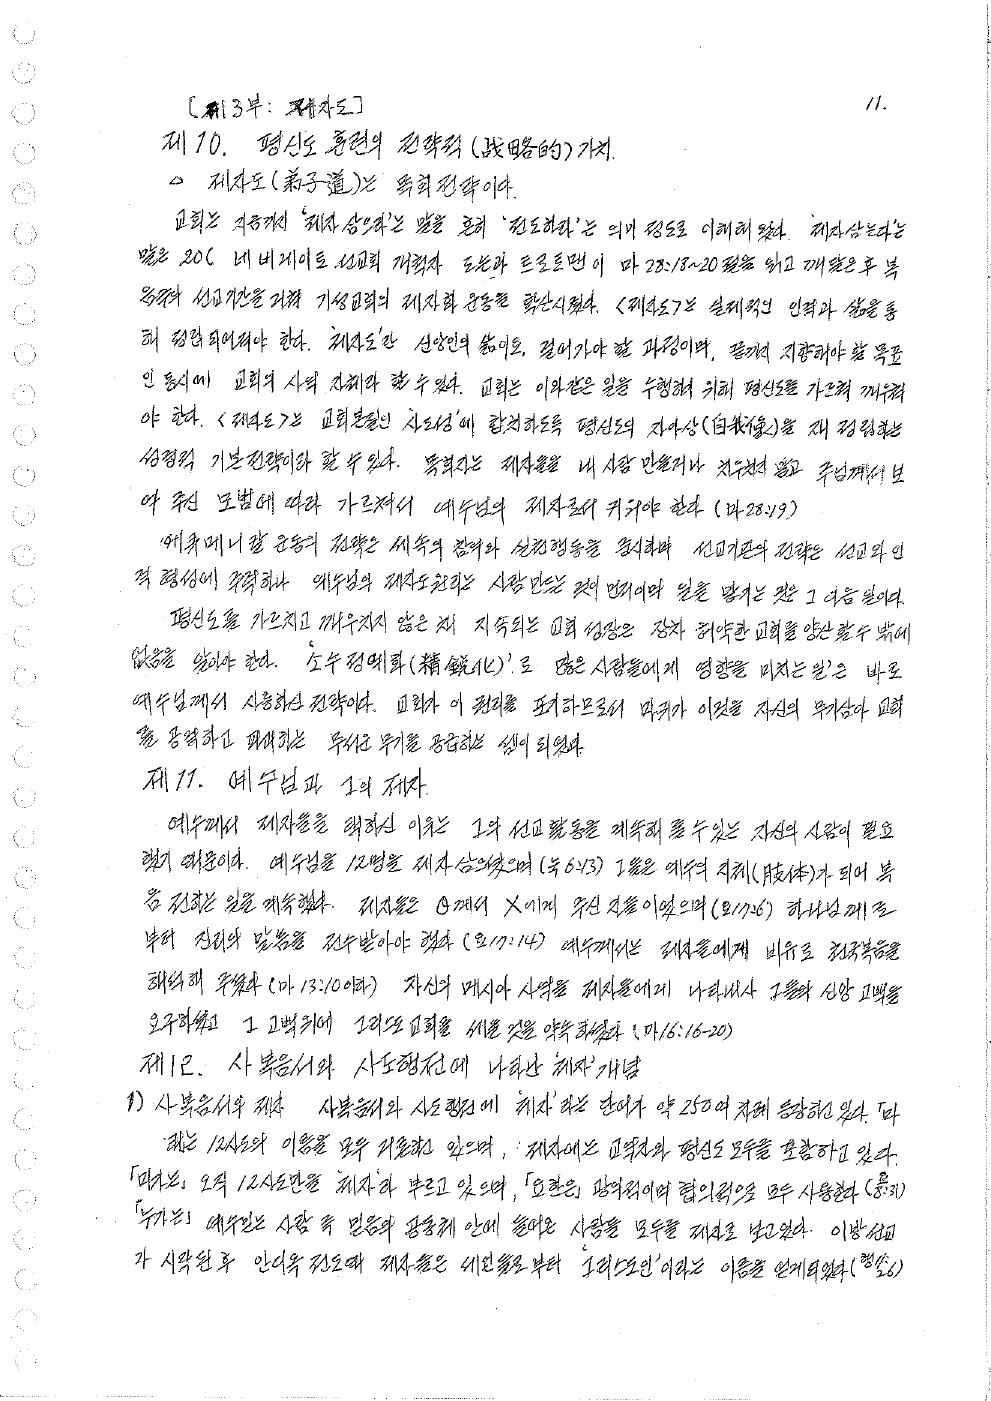 [제3부: 제자도]
11.
제10. 평신도 훈련의 전략적(战略的)가치.
△ 제자도(弟子道)는 목회전략이다.
교회는 지금까지 '제자삼으라'는 말을 흔히 '전도하라'는 의미 정도로 이해해 왔다. '제자삼는다'는
말은 20C 네비게이토 선교회 개척자 도슨과 트로트맨이 마28:18~20절을 읽고 깨달은 후 복
음주의 선교기관을 위해 기성교회의 제자화 운동을 확산시켰다. <제자도>는 실제적인 인격과 삶을 통
해 정립되어져야 한다. '제자도'란 신앙인의 삶이요, 걸어가야 할 과정이며, 끝까지 지향해야 할 목표
인 동시에 교회의 사역 자체라 할 수 있다. 교회는 이와같은 일을 수행하기 위해 평신도를 가르쳐 깨우쳐
야 한다. <제자도>는 교회본질인 '사도성'에 합치하도록 평신도의 자아상(自我像)을 재 정립하는
성경적 기본전략이라 할 수 있다. 목회자는 제자들을 내 사람 만들거나 치우치지 않고 주님께서 보
여 주신 모범에 따라 가르쳐서 예수님의 제자로서 키워야 한다 (마28:19)
에큐메니칼 운동의 전략은 세속의 참여와 실천행동을 중시하며 선교기관의 전략은 선교와 인
격 형성에 주력하나 예수님의 제자도 원리는 사람 만드는 것이 먼저이며 일을 맡기는 것은 그 다음 일이다.
평신도를 가르치고 깨우치지 않은 채 지속되는 교회 성장은 장차 허약한 교회를 양산할 수 밖에
없음을 알아야 한다. '소수 정예화(精鋭化)'로 많은 사람들에게 영향을 미치는 일'은 바로
예수님께서 사용하신 전략이다. 교회가 이 원리를 포기하므로서 마귀가 이것을 자신의 무기삼아 교회
를 공략하고 파괴하는 무서운 무기를 공급하는 셈이 되었다.
제11. 예수님과 그의 제자.
예수께서 제자들을 택하신 이유는 그의 선교활동을 계속해 줄 수 있는 자신의 사람이 필요
했기 때문이다. 예수님을 12명을 제자 삼으셨으며(눅6:13) 그들은 예수의 지체(肢体)가 되어 복
음 전하는 일을 계속했다. 제자들은 θ께서 X에게 주신 자들이었으며(요17:6) 하나님께로
부터 진리의 말씀을 전수받아야 했다 (요17:14) 예수께서는 제자들에게 비유로 천국복음을
해석해 주셨다 (마13:10이하) 자신의 메시아 사역을 제자들에게 나타내사 그들의 신앙 고백을
요구하셨고 그 고백위에 그리스도 교회를 세울 것을 약속 하셨다 (마16:16-20)
제12. 사복음서와 사도행전에 나타난 '제자'개념
1) 사복음서의 제자 사복음서와 사도행전에 '제자'라는 단어가 약 250여 차례 등장하고 있다. 「마
태는」 12사도의 이름을 모두 기록하고 있으며, 제자에는 교역자와 평신도 모두를 포함하고 있다.
「마가는」 오직 12사도만을 '제자'라 부르고 있으며, 「요한은」 광의적이며 협의적으로 모두 사용한다 (요8:31)
「누가는」 예수믿는 사람 즉 믿음의 공동체 안에 들어온 사람들 모두를 제자로 보고있다. 이방선교
가 시작된 후 안디옥 전도때 제자들은 세인들로부터 '그리스도인'이라는 이름을 얻게되었다 (행11:26)